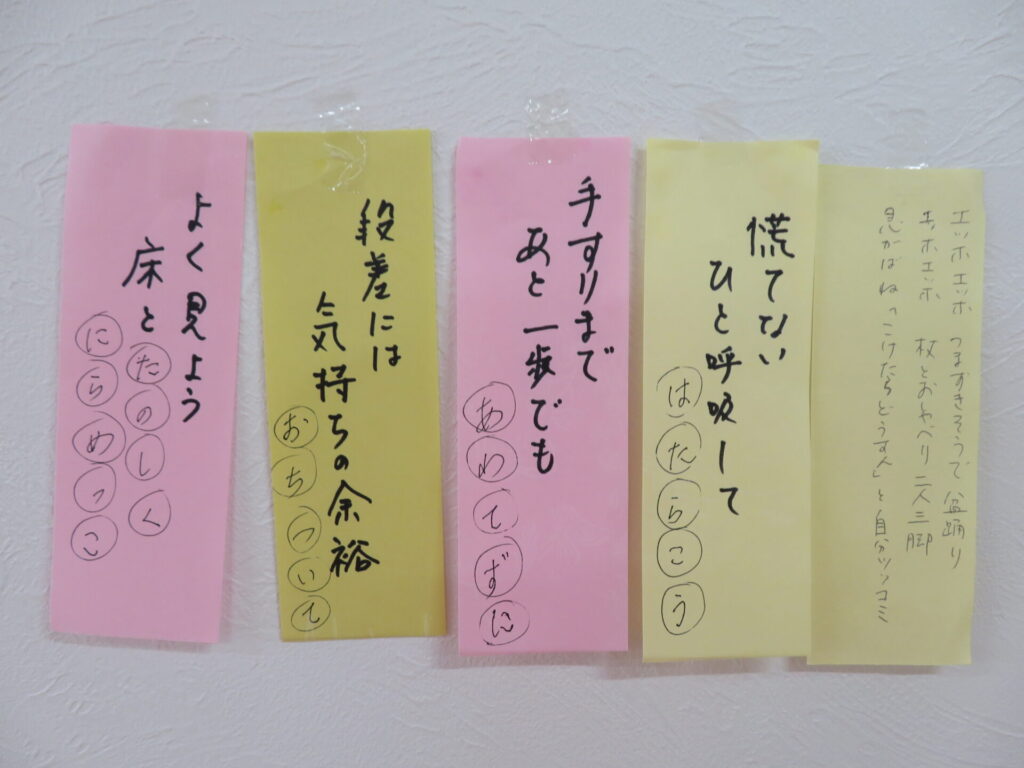 エッホエッホ つまずきそうで 盆踊り
エッホエッホ 杖とおしゃべり 二人三脚
急がばね「こけたらどうすん」と自分ツッコミ
慌てない
ひと呼吸して
はたらこう
手すりまで
あと一歩でも
あわてずに
段差には
気持ちの余裕
おちついて
よく見よう
床とたのしく
にらめっこ